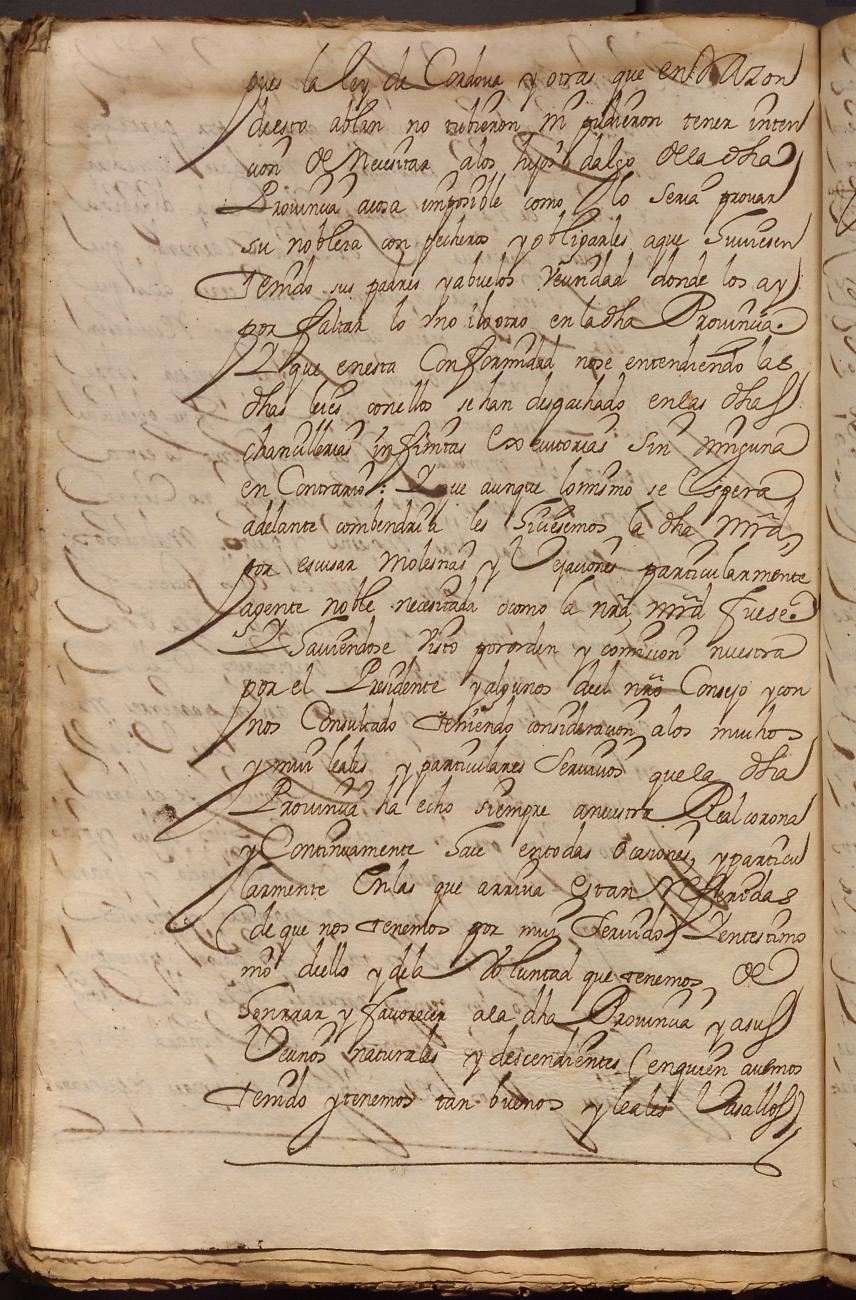 pues la ley de Cordova y otras que en Razon
de esto ablan no tubieron ni pudieron tener inten
cion de Necesitar a los hijos dalgo de la dha
Provincia a cosa imposible como lo seria provar
su nobleza con pecheros y obligarles a que huviesen
Tenido sus padres y abuelos Vecindad donde los ay
por faltar lo uno i lo otro en la dha Provincia.
Y que en esta Conformidad no se entendiendo las
dhas leies con ellos se han despachado en las dhas
chancillerias infinitas Executorias sin ninguna
en Contrario: Y que aunque lo mismo se Espera
adelante combendria les hiciesemos la dha mrd
por escusar molestias y Vejaciones particularmente
a gente noble necesitada o como la nra mrd fuese.
Y haviendose Visto por orden y comision nuestra
por el Presidente y algunos de el nro Consejo y con
nos Consultado Teniendo consideracion a los muchos
y mui leales y particulares Servicios que la dha
Provincia ha echo siempre a nuestra Real corona
y Continuamente hace en todas ocasiones, y particu
larmente En las que arriva Estan Referidas
(de que nos Tenemos por mui Servido) Y en testimo
nio de ello y de la Voluntad que tenemos de
honrrar y favorecer a la dha Provincia y a sus
Vecinos naturales y descendientes (en quien avemos
Tenido y tenemos tan buenos y leales Vasallos)